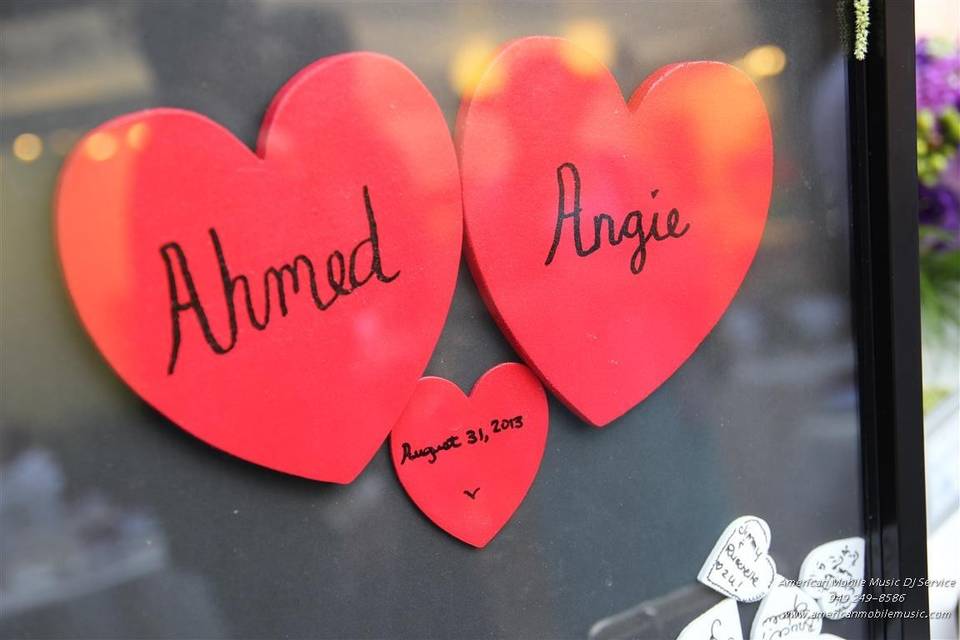 Ahmed
Angie
August 31, 2013
American Mobile Music DJ Service
949 249-8586
www.americanmobilemusic.com